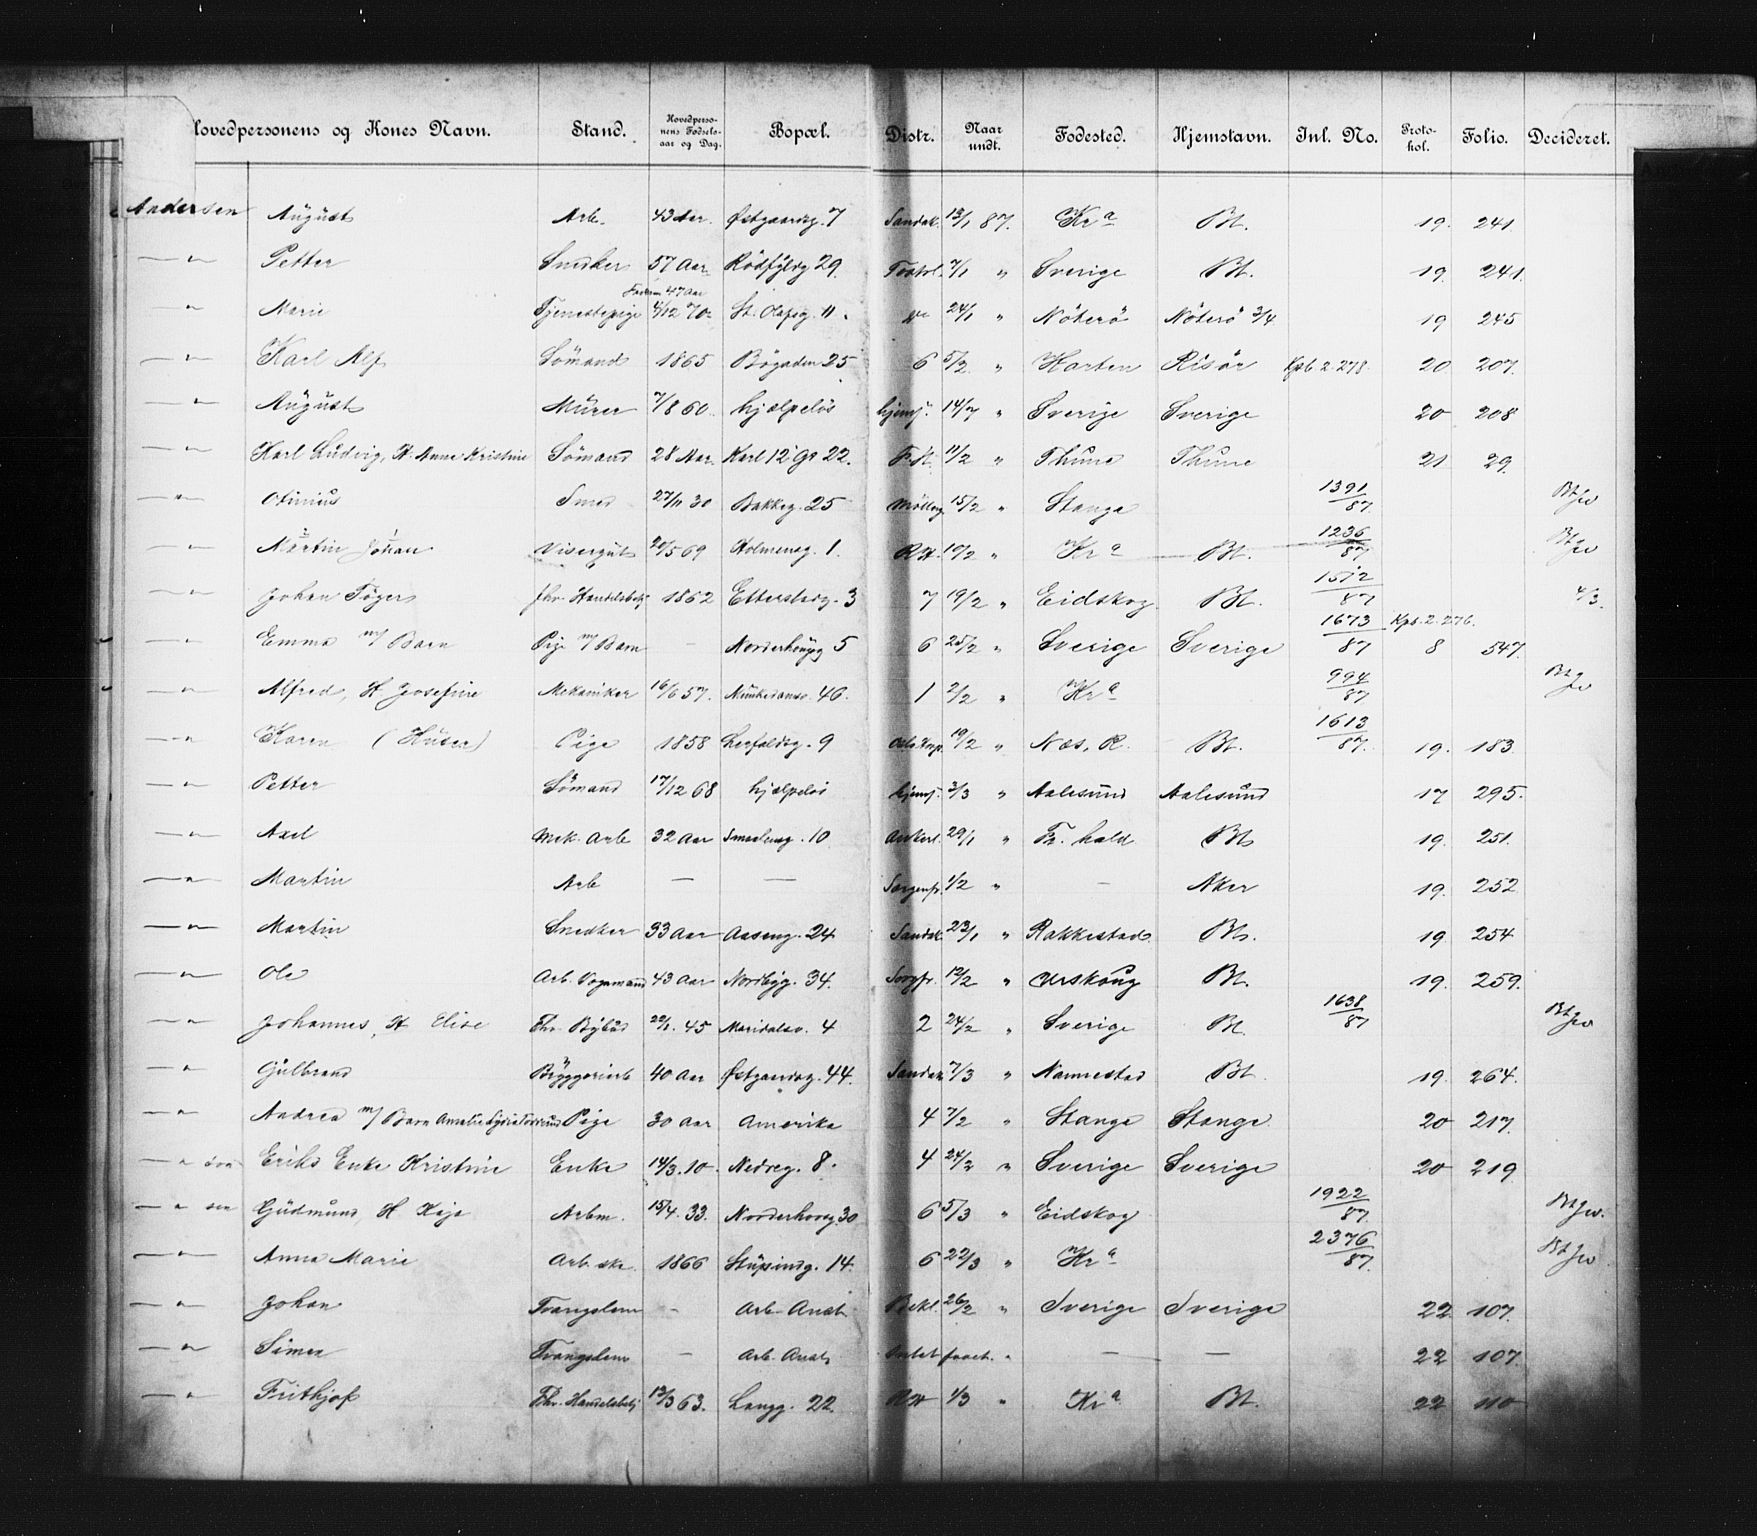 Hovedpersonens og Kones Navn. Stand. Hovedpersonens Fødselsaar og Dag. Bopæl. Distr. Naar undt. Fødested. Hjemstavn. Inl. No. Protohol. Folio. Decideret.
Andersen August Arb. 43 Aar. Østgaardsg. 7 Sandak. 13/1 87. Kra Bt. 19. 241
—"— Petter Snedker 57 Aar Rödfyldg 29 7/1 " Sverige Bt. 19. 241.
" Marie Tjenestepige Faderen 47 Aar 4/12 70 St. Olafsg. 11. 24/1 " Nöterö Nöterö 3/4 19 245
—"— Karl Alf Sömand 1865 Bögaden 25 6 5/2 " Horten Risör Kpb 2. 278. 20 207.
—"— August Murer 7/8 60. hjælpelös hjemf. 14/7 " Sverige Sverige 20 208
—"— Karl Ludvig, H. Anne Kristine Sömand 28 Aar. Karl 12 Gt 22. 11/2 " Thune Thune 21 29.
—"— Otinius Smed 27/11 30 Bakkeg. 25 Mölleg. 15/2 " Stange 1391/87. Bt Jw
—"— Martin Johan Visergut 20/5 69 Holmensg. 1. RH. 10/2 " Kra Bt. 1236/87 Bt Jw
—"— Johan Töger fhv. Handelsbetj 1862 Etterstadg. 3 7 19/2 " Eidskog Bt. 1512/87 4/3.
—"— Emma m/ Barn Pige m/ Barn — Norderhougg 5 6 25/2 " Sverige Sverige 1673/87 Kpb. 2. 276. 8 547.
—"— Alfred, H. Josefine Mekaniker 16/6 57. Munkedamsv. 46. 1 2/2 " Kra 994/87 Bt Jw
—"— Karen (Huser) Pige 1858 Herfaldsg. 9 19/2 " Næs, R. Bt. 1613/87. 19. 183
—"— Petter Sömand 17/12 68 hjælpelös hjemf. 3/3 " Aalesund Aalesund 17 295.
—"— Axel Mek. Arb 32 Aar Smaleng. 10 Ankerl. 29/1 " Fr. hald Bt 19. 251.
—"— Martin Arb — — Sorgenfr. 1/2 " — Aker 19. 252
—"— Martin Snedker 33 Aar Aaseng. 24 Sandak 23/1 " Rakkestad Bt. 19 254
—"— Ole Arb. Vognmand 43 Aar Nordbyg. 34. Sorgfr. 12/2 " Urskoug Bt. 19. 259.
—"— Johannes, H Elise Fhv. Bybud 22/1. 45 Maridalsv. 4 2 24/2 " Sverige Bt 1638/87 Bt Jw
—"— Gulbrand Byggeriarb 40 Aar Østgaardsg. 44. Sandak 7/3 " Nannestad Bt 19. 264.
—"— Andrea m/ Barn Pige 30 Aar Amerika 4 7/2 " Stange Stange 20 217.
—"— Eriks Enke Kristine Enke 14/3. 10. Nedreg. 8. 4 24/2 " Sverige Sverige 20 219
—"— sen Gudmund, H. Kaja Arbm. 15/4. 33. Norderhovg 30 6 5/3 " Eidskog 1922/87. Bt Jw.
—"— Anna Marie Arb. ske. 1866 Stupindg. 14. 6 22/3 " Kra 2376/87. Bt Jw
—"— Johan Tvangslem — Arb. Anst. Bekl. 26/2 " Sverige Sverige 22 107.
—"— Simen Tvangslem — Arb. Anst. Intet foret. " — — 22 107.
—"— Frithjof Fhv. Handelsbetj 13/3 63. Langg. 22. RH 1/3 " Kra Bt. 22 110